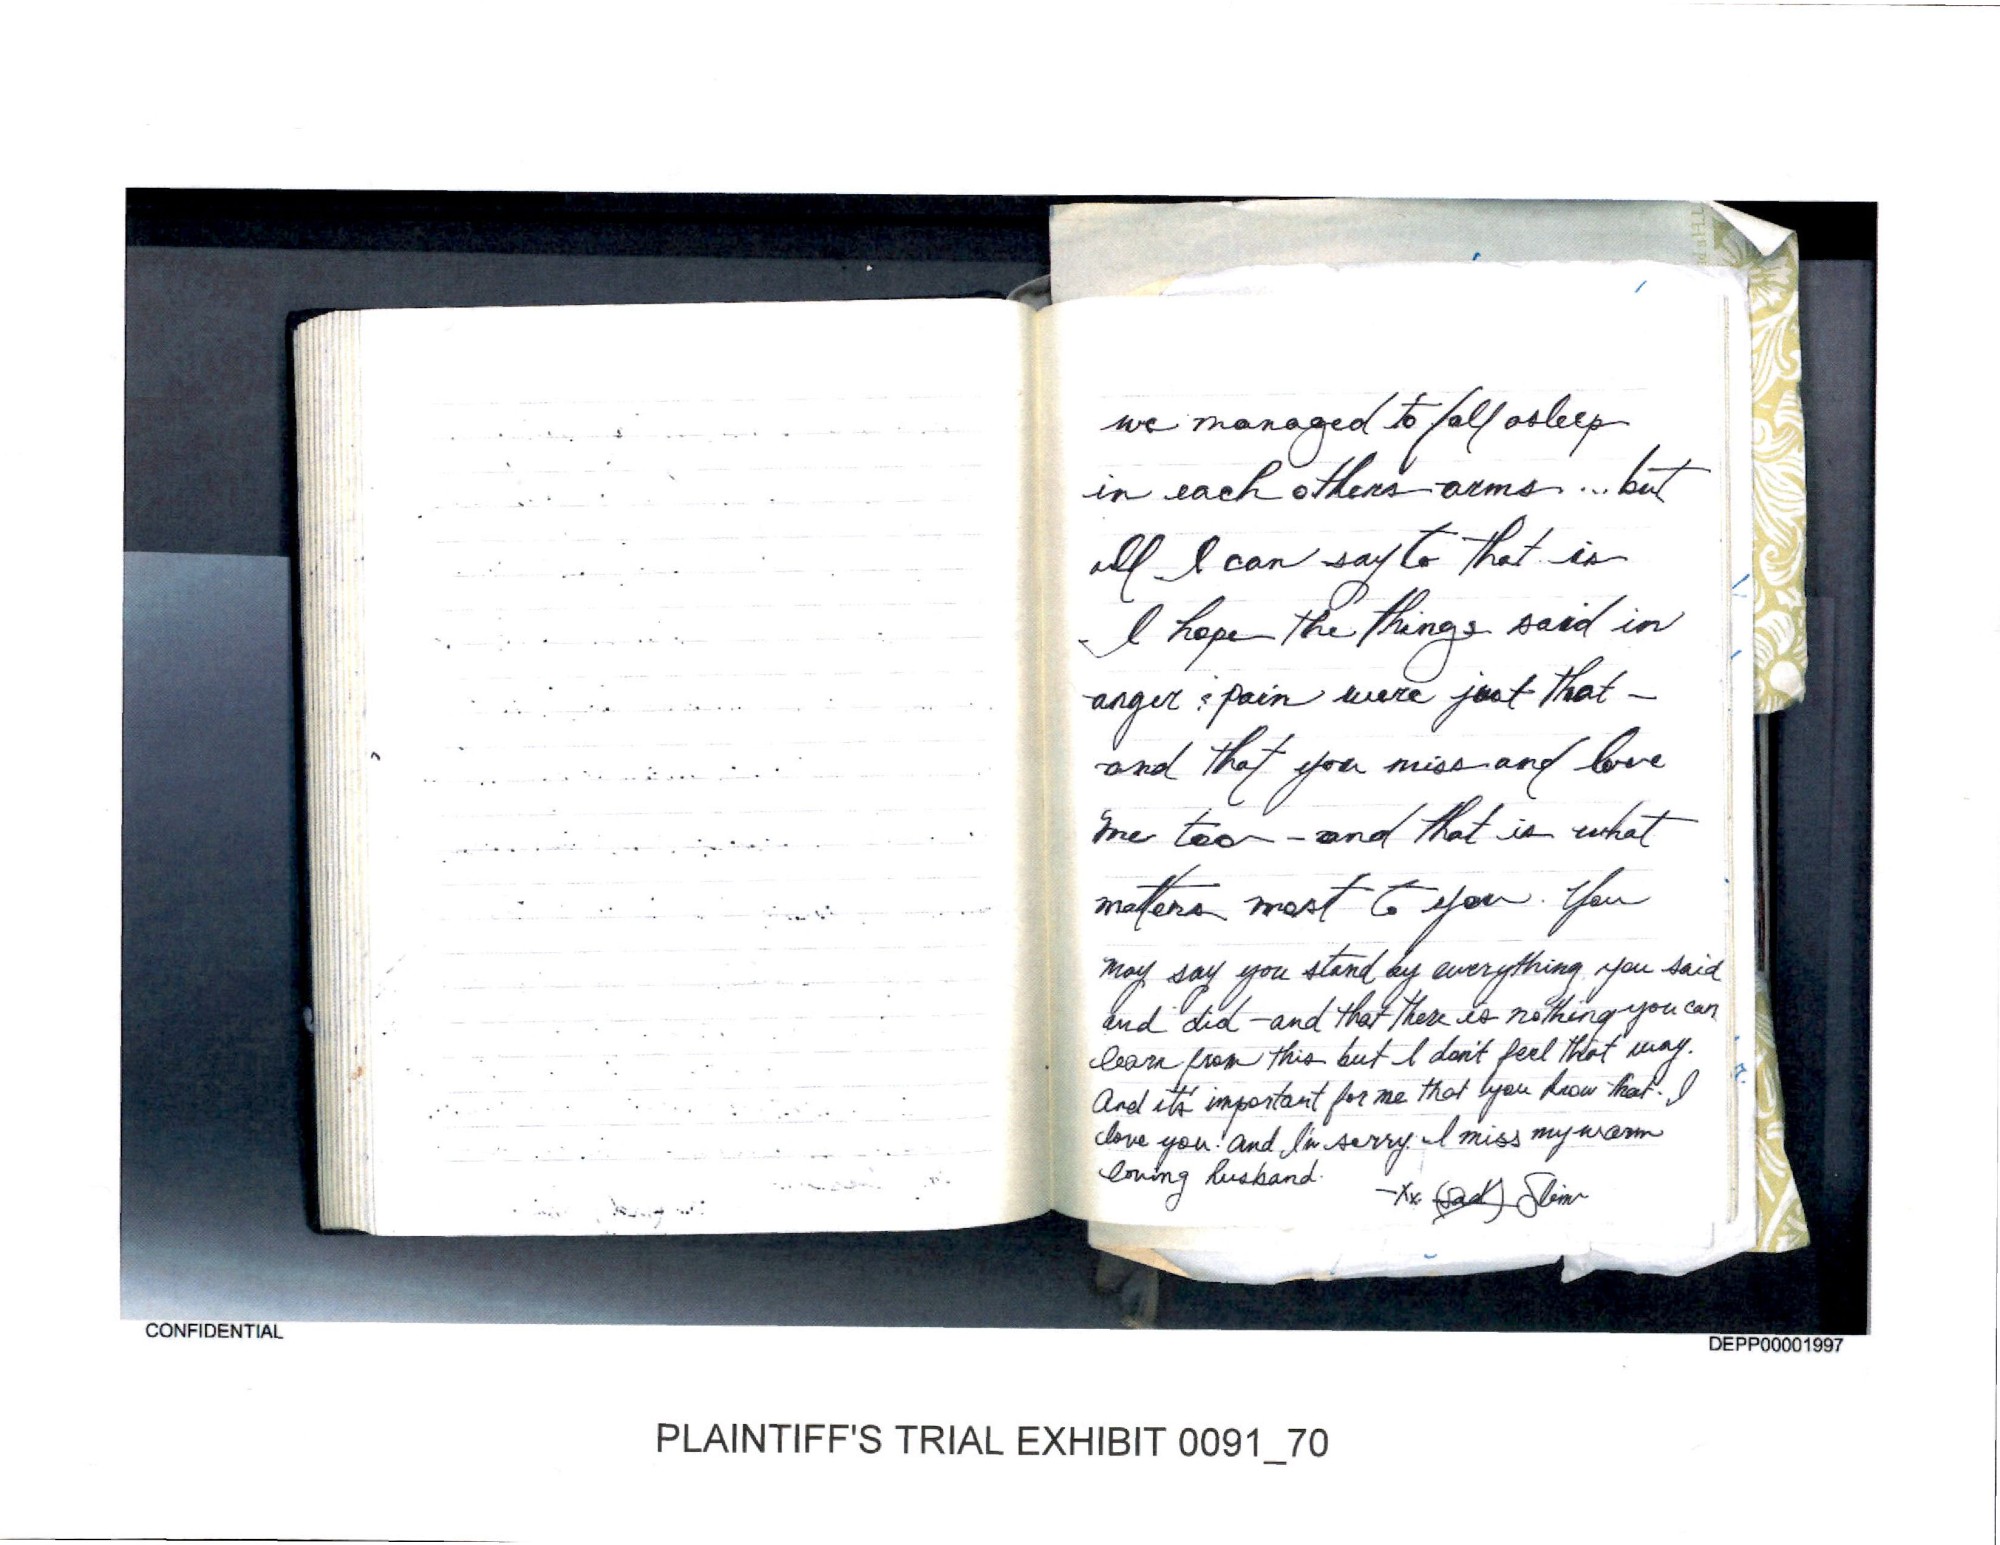 we managed to fall asleep
in each others arms ... but
all I can say to that is
I hope the things said in
anger & pain were just that -
and that you miss and love
me too - and that is what
matters most to you. You
may say you stand by everything you said
and did - and that there is nothing you can
learn from this but I don't feel that way.
And it's important for me that you know that. I
love you! and I'm sorry. I miss my warm
loving husband.
-Xx (sad) Slim
CONFIDENTIAL
DEPP00001997
PLAINTIFF'S TRIAL EXHIBIT 0091_70